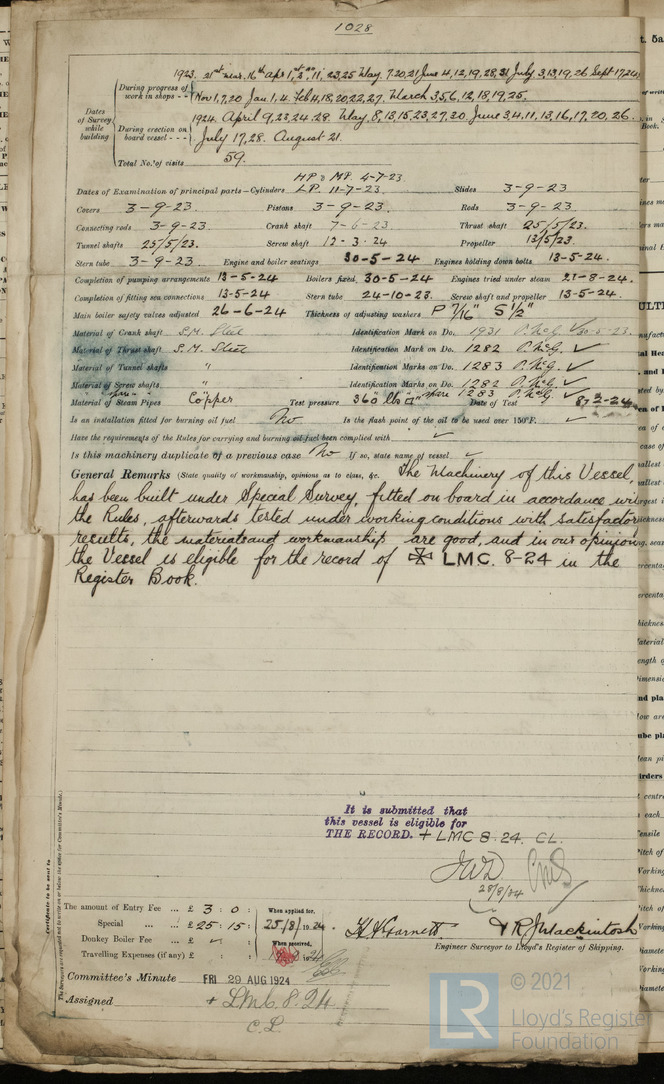 1028
1923. 21st Mar. 16th Apr 1, 11, 23, 25 May. 7. 20, 21 June 4, 12, 19, 28, 31 July 3, 13, 19, 26 Sept 17, 24
During progress of work in shops - - Nov 1, 7, 20 Jan. 1. 4. Feb 4, 18, 20, 22, 27. March 3, 5, 6, 12, 18, 19, 25.
Dates of Survey while building
1924. April 9, 23, 24. 28. May. 8, 13, 15, 23, 27, 30 June 3, 4, 11, 13, 16, 17, 20, 26.
During erection on board vessel - - - July 17, 28. August 21.
Total No. of visits 59.
HP & MP. 4-7-23.
Dates of Examination of principal parts—Cylinders LP. 11-7-23. Slides 3-9-23
Covers 3-9-23. Pistons 3-9-23. Rods 3-9-23.
Connecting rods 3-9-23. Crank shaft 7-6-23 Thrust shaft 25/5/23.
Tunnel shafts 25/5/23. Screw shaft 12-3-24 Propeller 13/5/23.
Stern tube 3-9-23. Engine and boiler seatings 30-5-24 Engines holding down bolts 13-5-24.
Completion of pumping arrangements 13-5-24 Boilers fixed 30-5-24 Engines tried under steam 21-8-24.
Completion of fitting sea connections 13-5-24 Stern tube 24-10-23. Screw shaft and propeller 13-5-24.
Main boiler safety valves adjusted 26-6-24 Thickness of adjusting washers P 7/16" S 1/2"
Material of Crank shaft S.M. Steel Identification Mark on Do. 1931 P. McG. ✓ 30-5-23.
Material of Thrust shaft S.M. Steel Identification Mark on Do. 1282 P. McG. ✓
Material of Tunnel shafts " Identification Marks on Do. 1283 P. McG. ✓
Material of Screw shafts " Identification Marks on Do. 1282 P. McG. ✓
" spare " spare 1283 P. McG. ✓
Material of Steam Pipes Copper Test pressure 360 lbs □" Date of Test
Is an installation fitted for burning oil fuel No Is the flash point of the oil to be used over 150°F. ✓
Have the requirements of the Rules for carrying and burning oil fuel been complied with ✓
Is this machinery duplicate of a previous case No If so, state name of vessel ✓
General Remarks (State quality of workmanship, opinions as to class, &c. The Machinery of this Vessel,
has been built under Special Survey, fitted on board in accordance wi
the Rules, afterwards tested under working conditions with satisfactor
results, the materials and workmanship are good, and in our opinion
the Vessel is eligible for the record of ✠ LMC. 8-24 in the
Register Book.
It is submitted that
this vessel is eligible for
THE RECORD. + LMC 8. 24. CL.
JWD.
28/8/24
Certificate to be sent to
The Surveyors are requested not to write on or below the space for Committee's Minute.
The amount of Entry Fee ... £ 3 : 0 : When applied for,
Special ... £ 25 : 15 : 25/8/1924.
Donkey Boiler Fee ... £ ✓ : When received,
Travelling Expenses (if any) £ : :
H H Garnett & R. J. Mackintosh
Engineer Surveyor to Lloyd's Register of Shipping.
Committee's Minute FRI 29 AUG 1924
Assigned + LMC. 8. 24
C.L.
LR © 2021
Lloyd's Register
Foundation